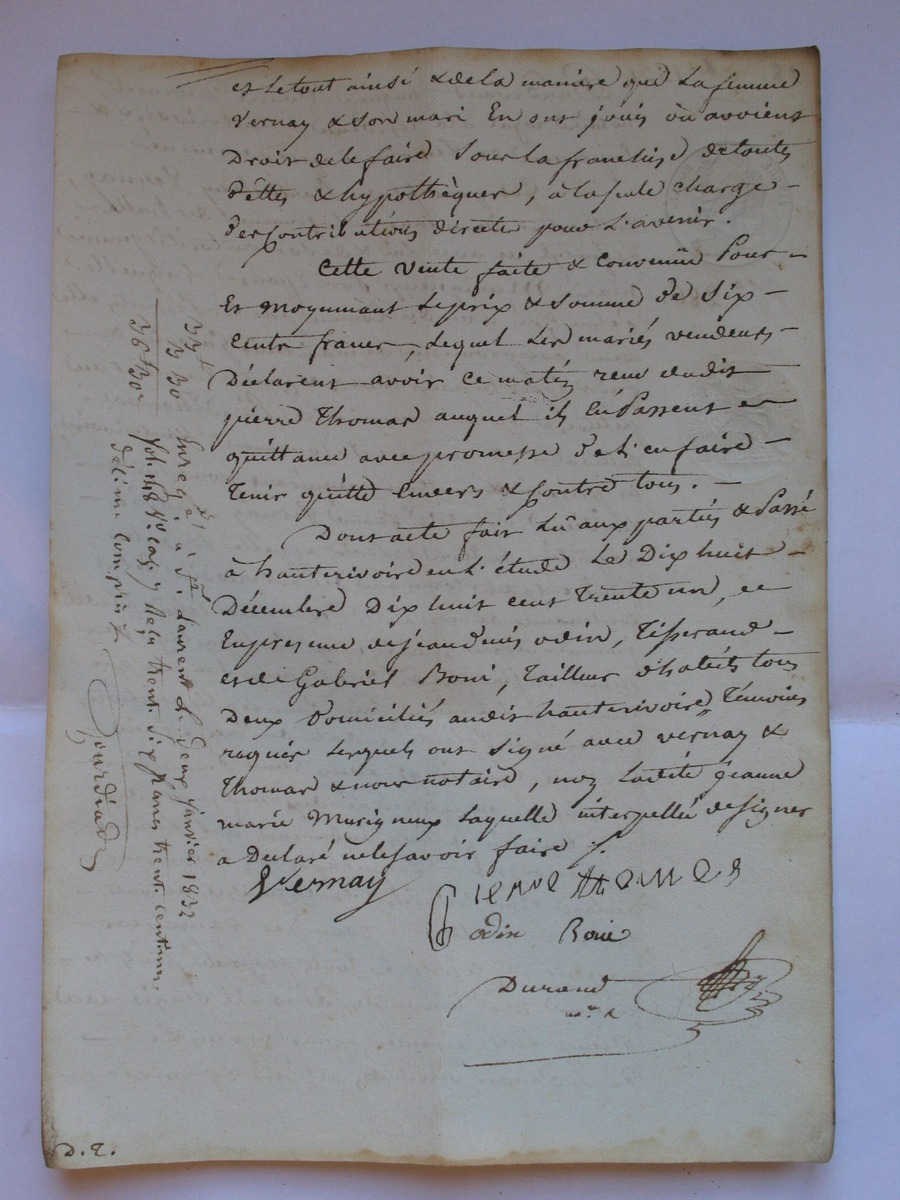 et le tout ainsi & de la maniere que la femme
Vernay & son mari En ont joüis ou avoient
Droit de le faire sous la franchise de toutes
dettes & hypothèques, à la seule charge
des Contributions directes pour l'avenir.
Cette vente faite & Convenüe Pour
Et moyennant le prix & somme de Six
Cents francs, lequel les mariés vendeurs
Déclarent avoir ce matin reçu dudit
pierre Thomas auquel ils En Passent
quittance avec promesse de l'en faire
Tenir quitte Envers & Contre tous.
Dont acte fait Lû aux parties & Passé
à hauterivoire en L'étude Le Dix huit
Décembre Dix huit cent Trente un, et
En presence de jean denis odin, Tisserand
et de Gabriel Boni, Tailleur d'habits tous
Deux Domiciliés audit hauterivoire Témoins
requis lesquels ont signé avec Vernay &
Thomas & nous notaire, non Ladite jeanne
marie Murigneux Laquelle interpellée de signer
a Déclaré ne le savoir faire ./.
Vernay
Pierre Thomas
odin Boni
Durand
nre
33f
3 30
36f 30c
Enregé à St. Laurent le deux janvier 1832
fol. 148 Vo. cas. 7 Reçu trente six francs trente centimes
décime compris.
D. E.